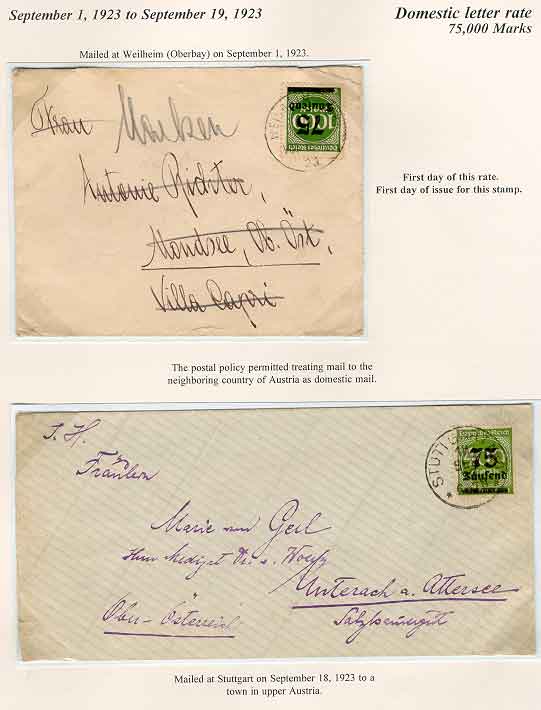 September 1, 1923 to September 19, 1923
Domestic letter rate
75,000 Marks
Mailed at Weilheim (Oberbay) on September 1, 1923.
Frau
Antonie Richter,
Mondsee, Ob. Öst,
Villa Capri
75
Tausend
100
Deutsches Reich
First day of this rate.
First day of issue for this stamp.
The postal policy permitted treating mail to the
neighboring country of Austria as domestic mail.
S. H.
Fräulein
Marie von Geil
Unterach a. Attersee
Ober-Österreich
Salzkammergut
STUTT
75
Tausend
Mailed at Stuttgart on September 18, 1923 to a
town in upper Austria.